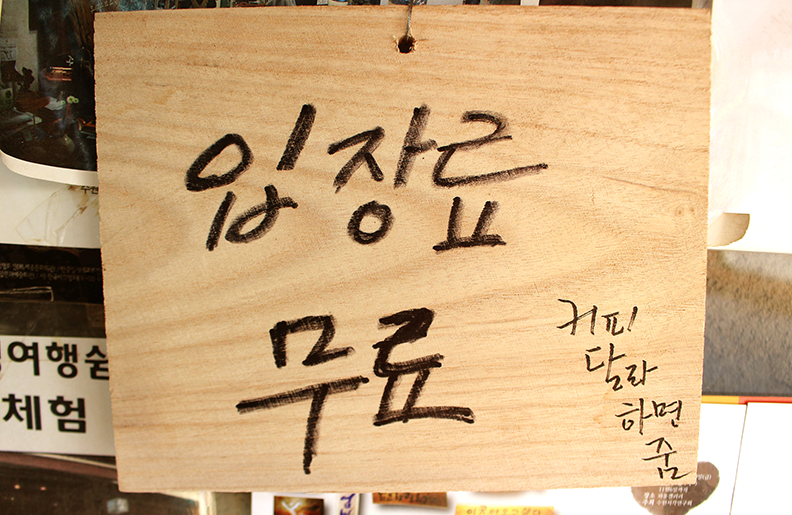 입장료
무료
커피
달라
하면
줌
여행쉼
체험